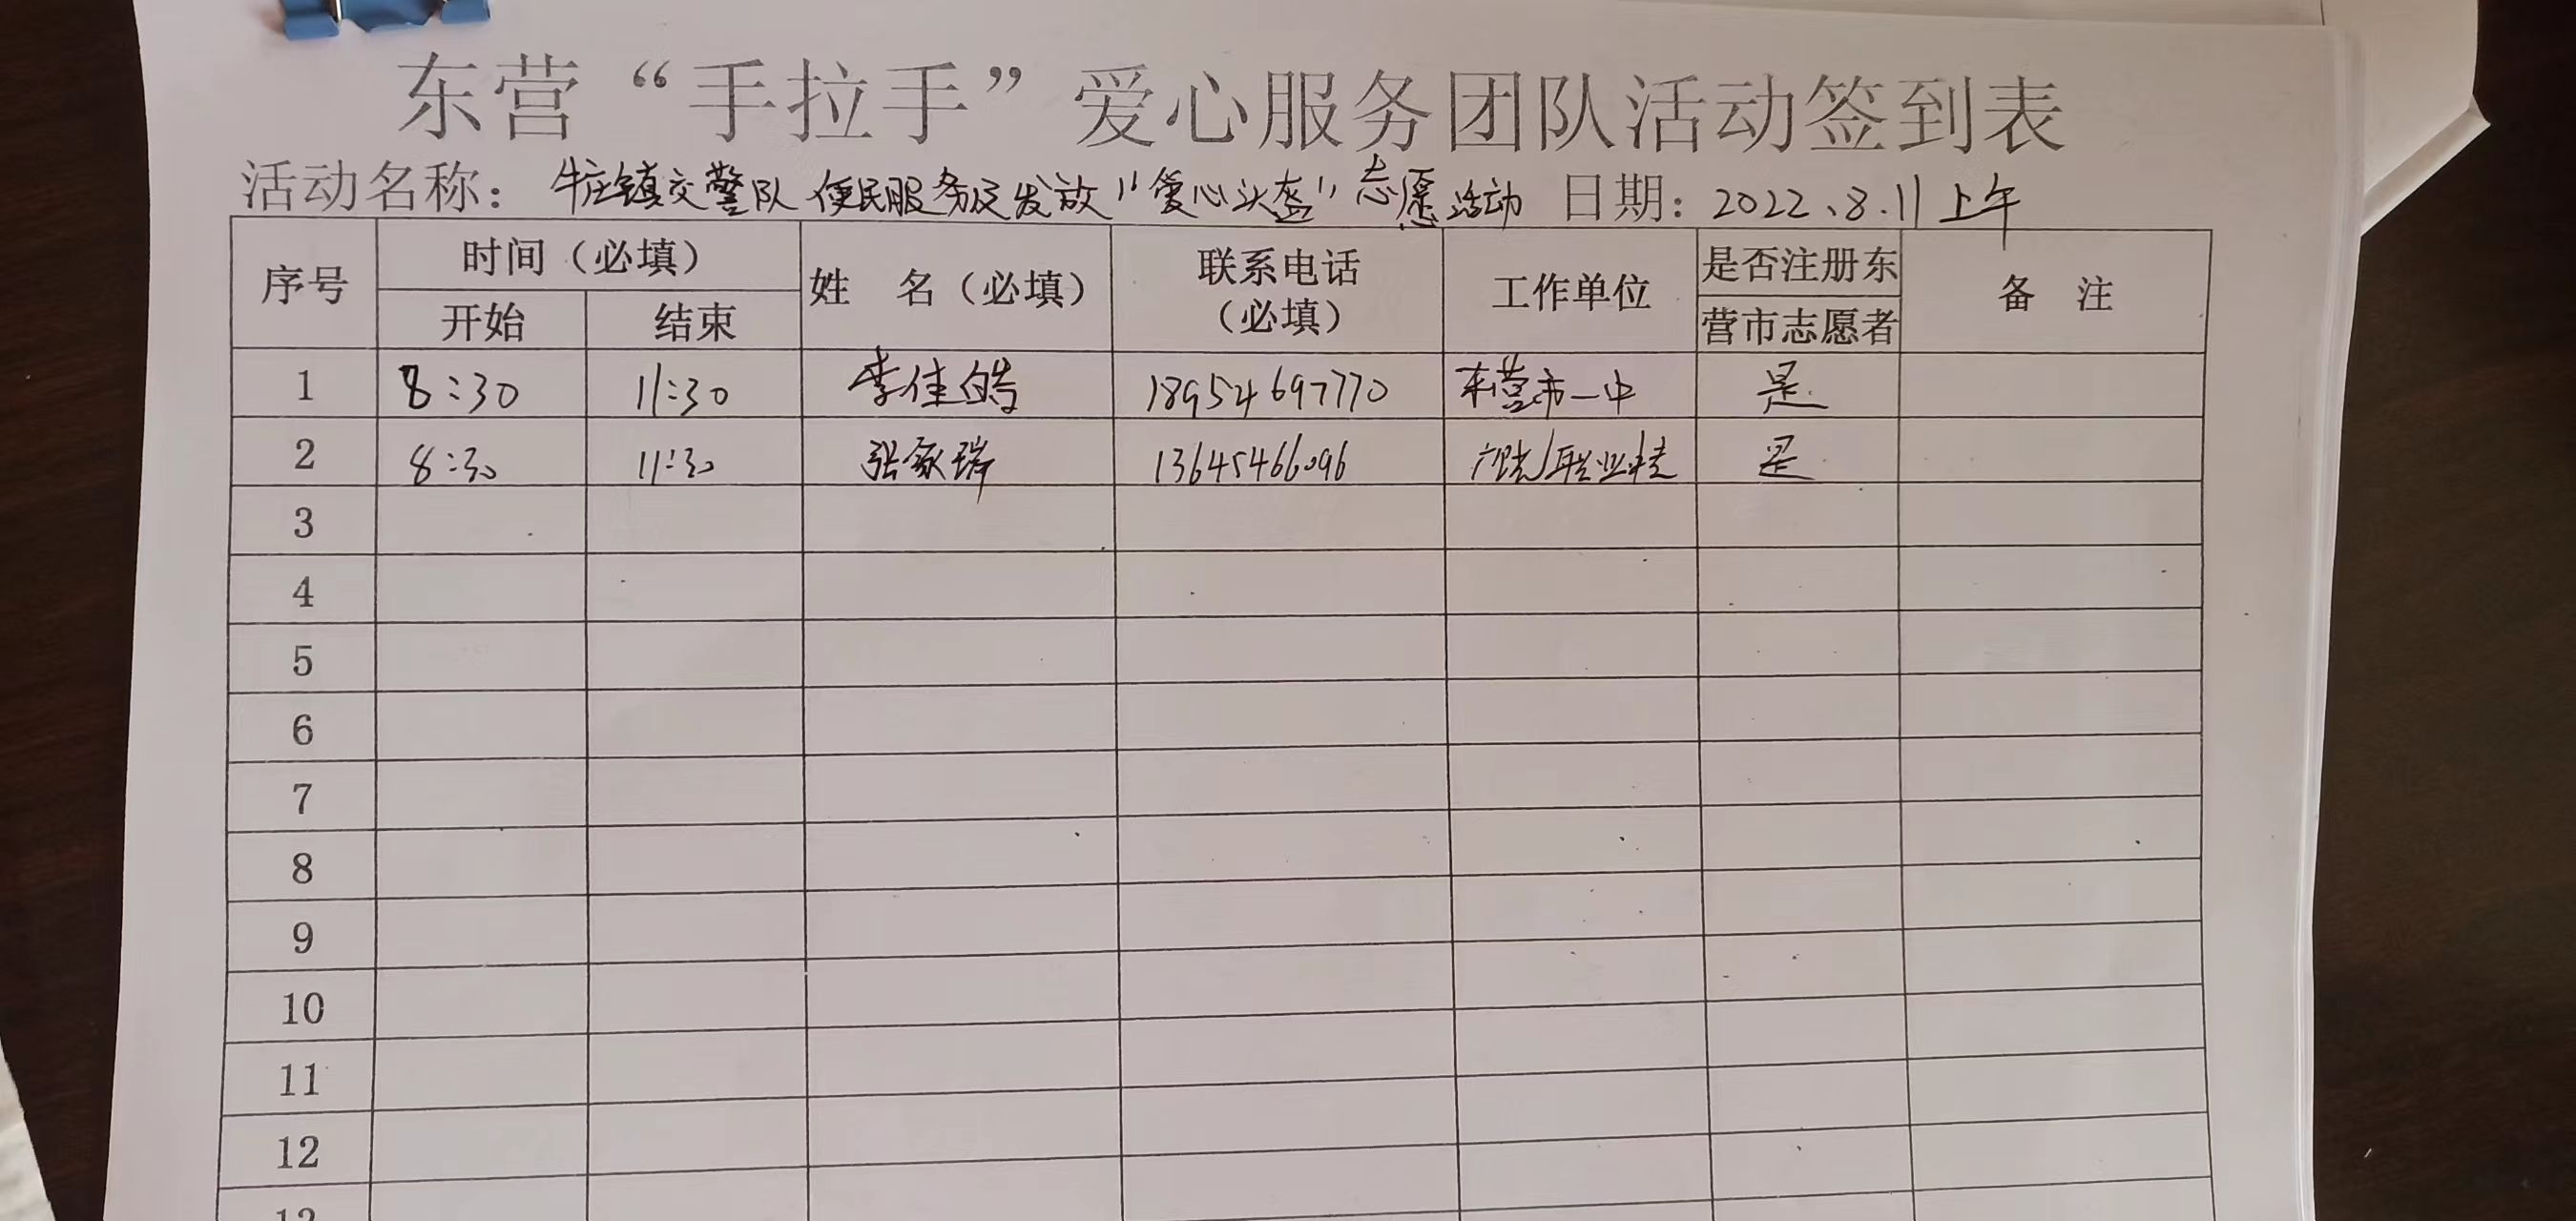 东营“手拉手”爱心服务团队活动签到表
活动名称：牛庄镇交警队便民服务及发放“爱心头盔”志愿活动 日期：2022、8.11上午
序号 时间（必填） 姓 名（必填） 联系电话（必填） 工作单位 是否注册东营市志愿者 备 注
开始 结束
1 8:30 11:30 李佳皓 18954697770 东营市一中 是
2 8:30 11:30 张家瑞 13645466096 职业 是
3
4
5
6
7
8
9
10
11
12
13